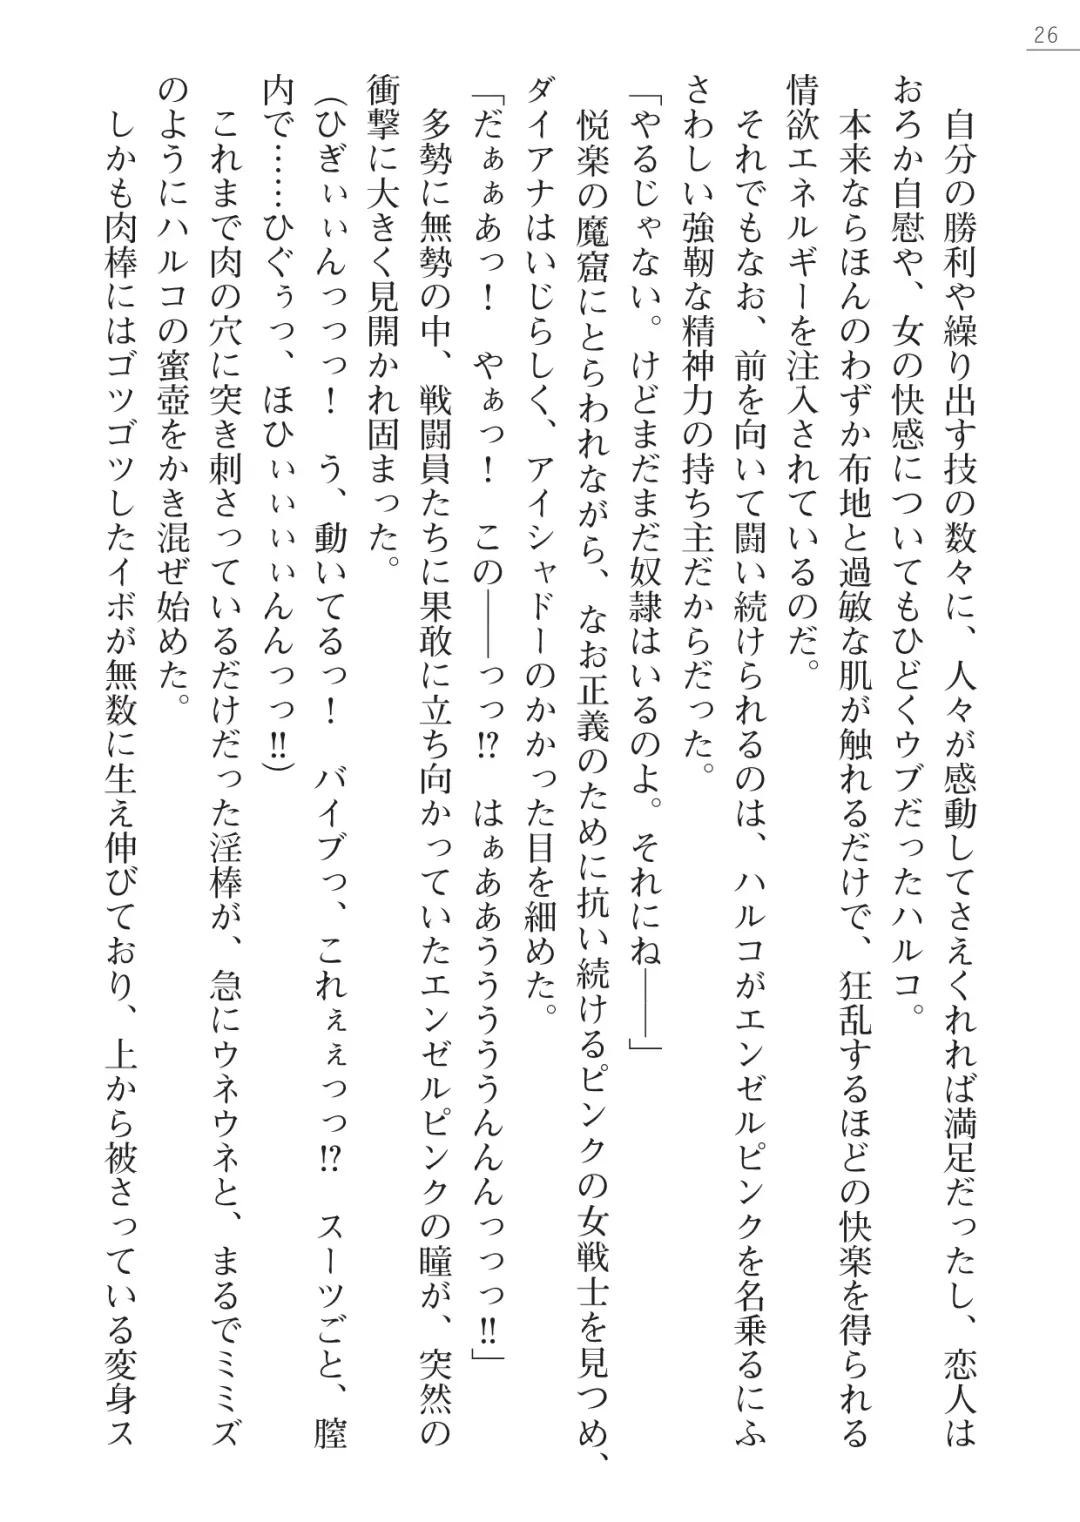 26
自分の勝利や繰り出す技の数々に、人々が感動してさえくれれば満足だったし、恋人は
おろか自慰や、女の快感についてもひどくウブだったハルコ。
本来ならほんのわずか布地と過敏な肌が触れるだけで、狂乱するほどの快楽を得られる
情欲エネルギーを注入されているのだ。
それでもなお、前を向いて闘い続けられるのは、ハルコがエンゼルピンクを名乗るにふ
さわしい強靭な精神力の持ち主だからだった。
「やるじゃない。けどまだまだ奴隷はいるのよ。それにね――」
悦楽の魔窟にとらわれながら、なお正義のために抗い続けるピンクの女戦士を見つめ、
ダイアナはいじらしく、アイシャドーのかかった目を細めた。
「だぁぁあっ！　やぁっ！　この――っっ!?　はぁああうううううんんんっっっ!!」
多勢に無勢の中、戦闘員たちに果敢に立ち向かっていたエンゼルピンクの瞳が、突然の
衝撃に大きく見開かれ固まった。
（ひぎぃぃんっっっ！　う、動いてるっ！　バイブっ、これぇぇっっ!?　スーツごと、膣
内で……ひぐぅっ、ほひぃぃぃぃんんっっ!!）
これまで肉の穴に突き刺さっているだけだった淫棒が、急にウネウネと、まるでミミズ
のようにハルコの蜜壺をかき混ぜ始めた。
しかも肉棒にはゴツゴツしたイボが無数に生え伸びており、上から被さっている変身ス